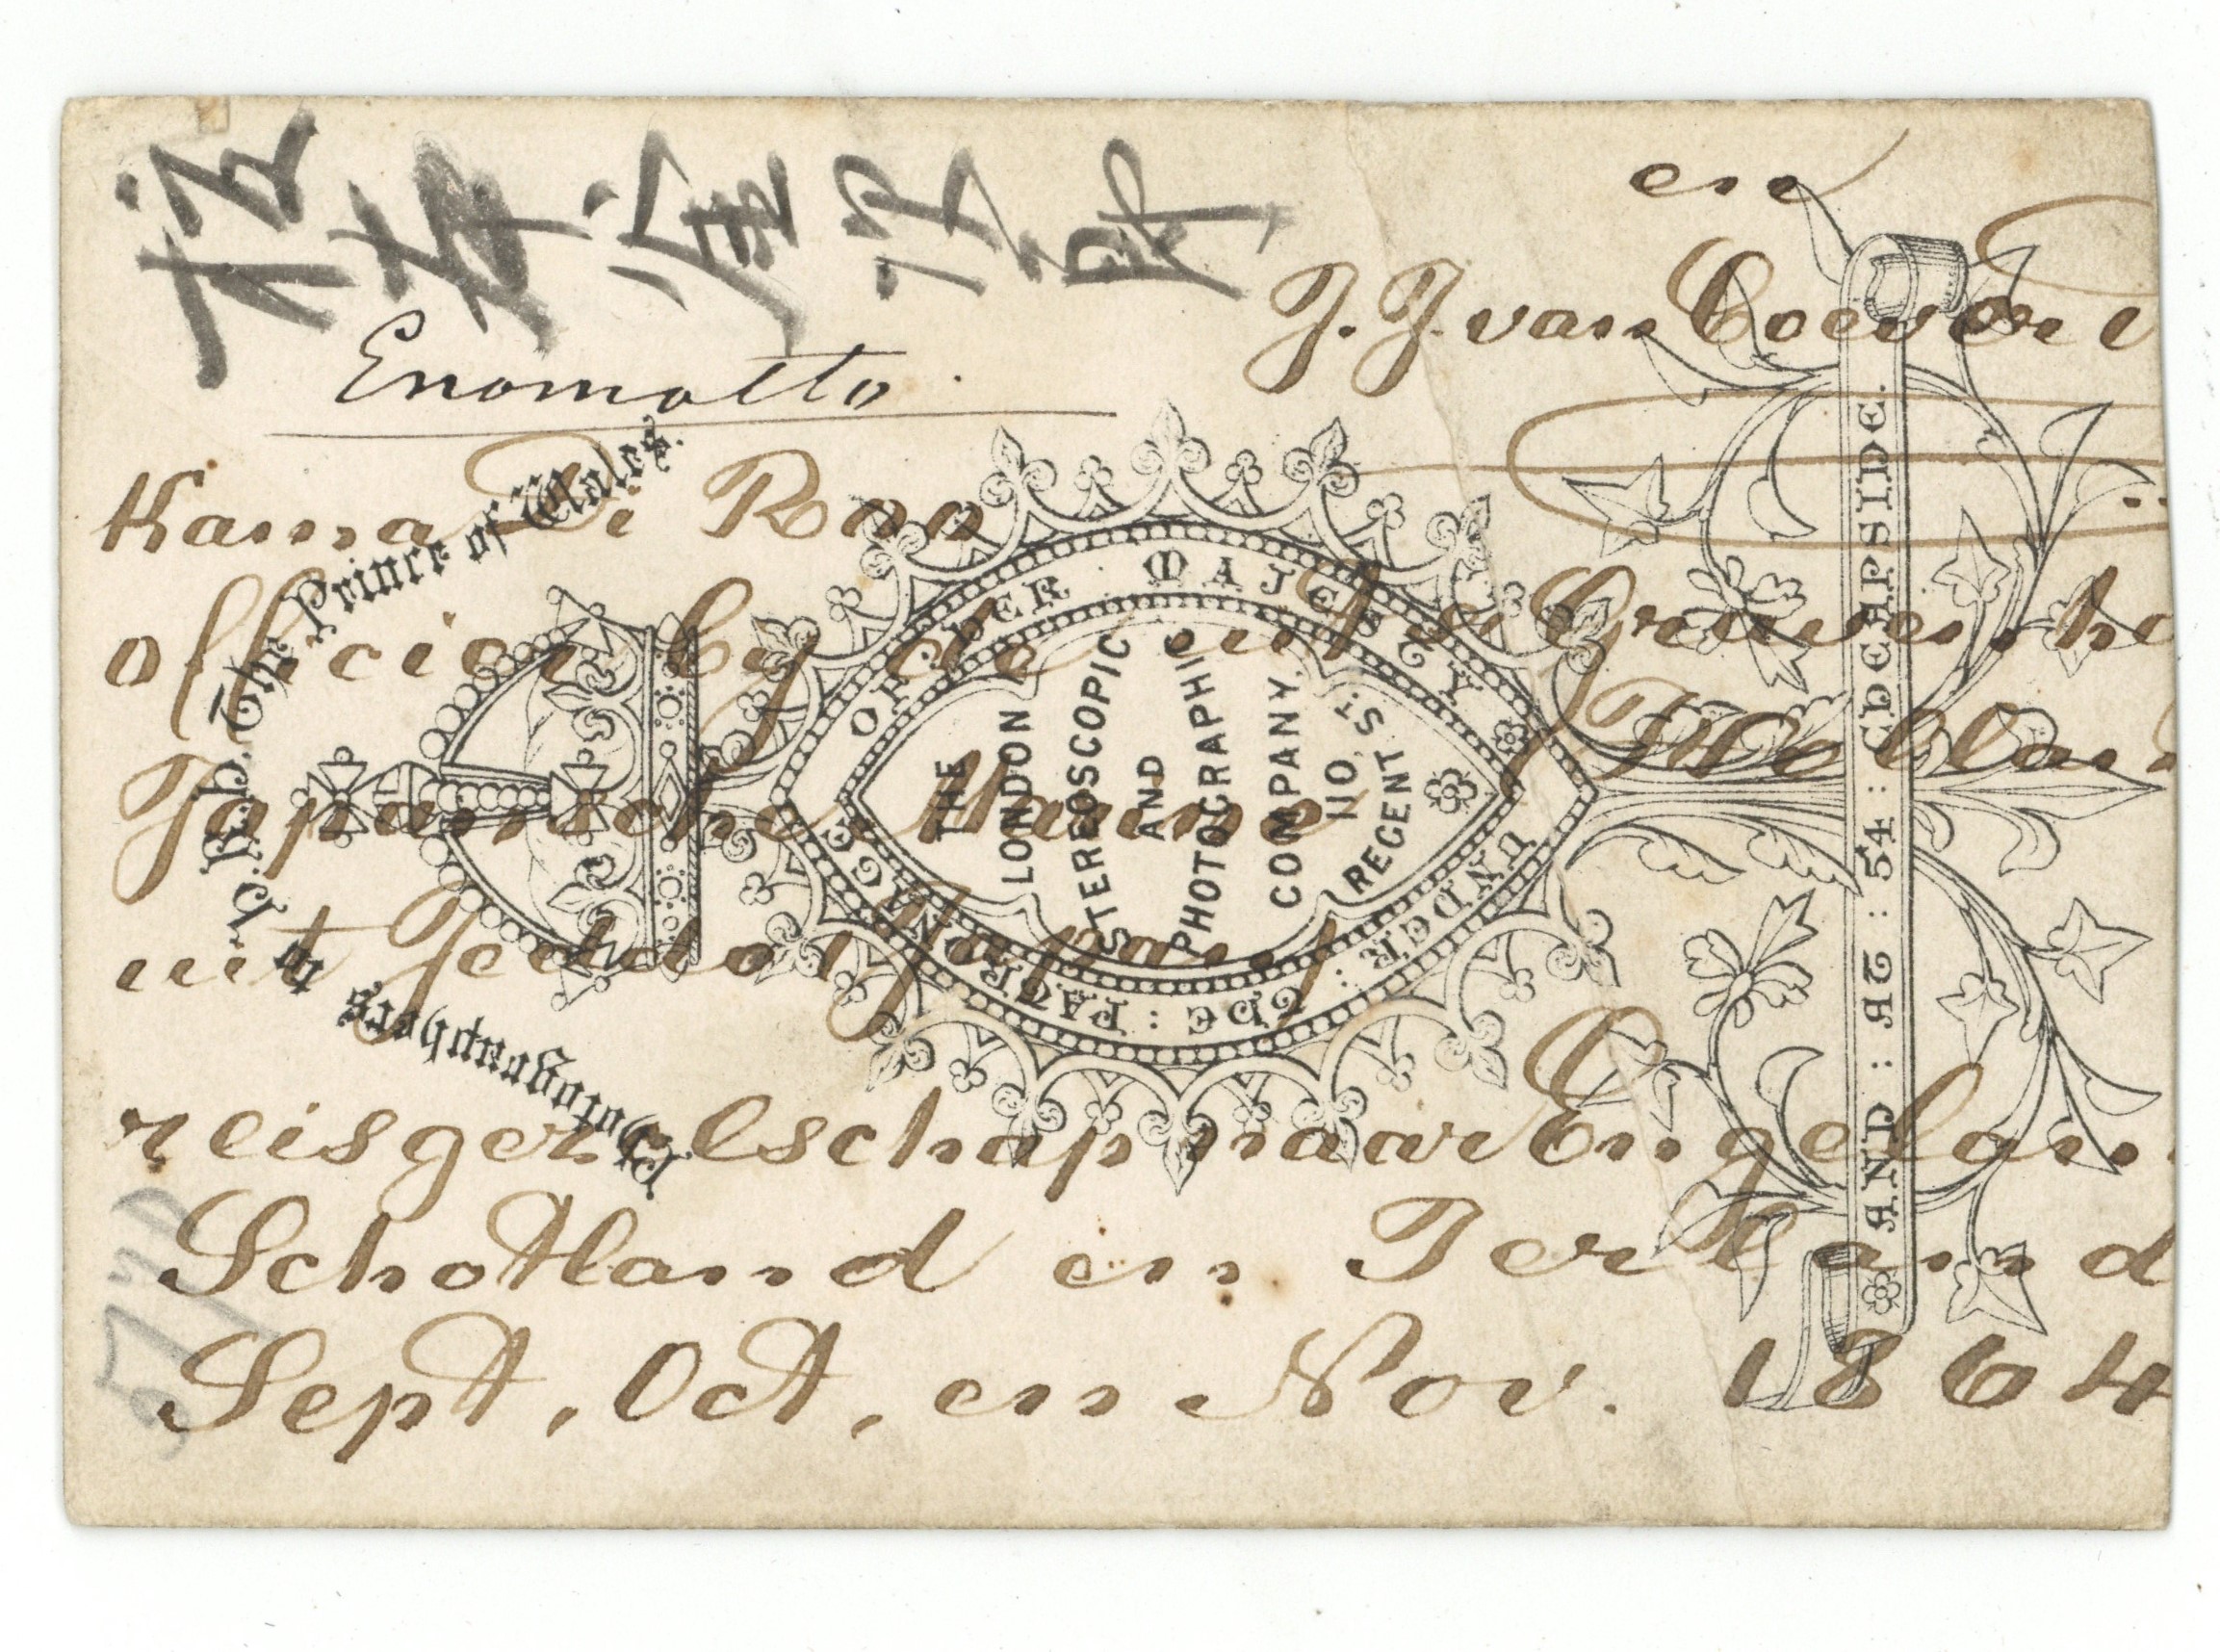 榎本釜次郎
en
Enomotto.
J. J. van Coever
Kama Di Roo
officier by de
Japansche Marine
uit Jeddo, Japan,
reisgezelschap naar Engelan
Schotland en Ierland
Sept, Oct, en Nov. 1864
Photographers to H.R.H. The Prince of Wales.
UNDER : THE : PATRONAGE
OF HER MAJESTY
THE
LONDON
STEREOSCOPIC
AND
PHOTOGRAPHIC
COMPANY.
110,
REGENT ST.
AND : AT : 54 : CHEAPSIDE.